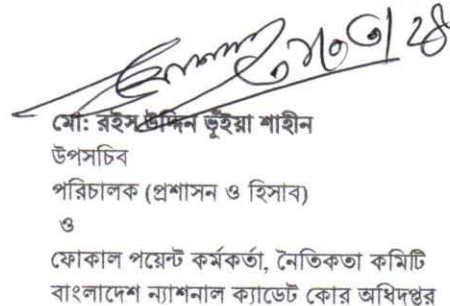 মো: রইস উদ্দিন ভূঁইয়া শাহীন
উপসচিব
পরিচালক (প্রশাসন ও হিসাব)
ও
ফোকাল পয়েন্ট কর্মকর্তা, নৈতিকতা কমিটি
বাংলাদেশ ন্যাশনাল ক্যাডেট কোর অধিদপ্তর